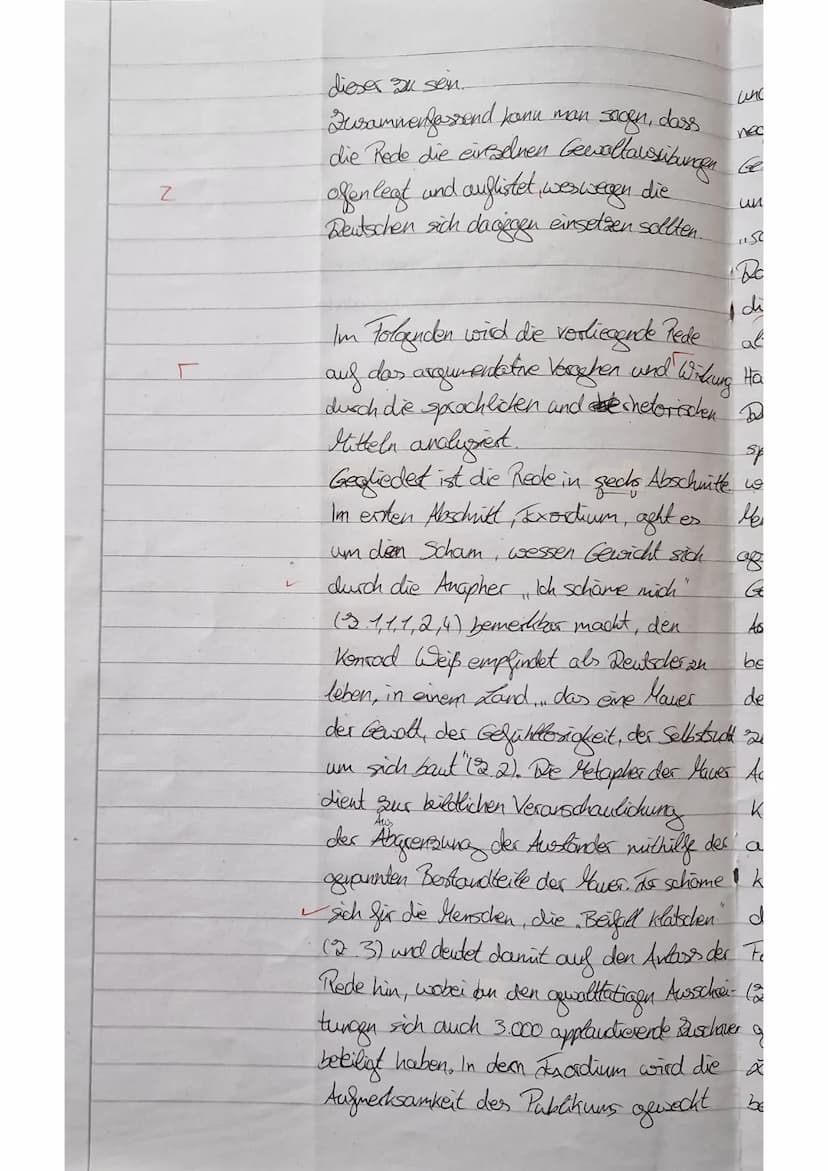 dieser zu sein.
Zusammenfassend kann man sagen, dass
die Rede die einzelnen Gewaltausübungen
Z offenlegt und auflistet, weswegen die
Deutschen sich dagegen einsetzen sollten.
Im Folgenden wird die vorliegende Rede
auf das argumentative Vorgehen und Wirkung
durch die sprachlichen und rhetorischen
Mitteln analysiert.
Gegliedert ist die Rede in sechs Abschnitte.
Im ersten Abschnitt, Exordium, geht es
um den Scham, wessen Gewicht sich
durch die Anapher „Ich schäme mich"
(Z. 1,1,1,2,4) bemerkbar macht, den
Konrad Weiß empfindet als Deutscher zu
leben, in einem Land „das eine Mauer
der Gewalt, der Gefühllosigkeit, der Selbstsucht
um sich baut" (Z. 2). Die Metapher der Mauer
dient zur bildlichen Veranschaulichung
Aus
der Abgrenzung der Ausländer mithilfe der
genannten Bestandteile der Mauer. Er schäme
sich für die Menschen, die „Beifall klatschen"
(Z. 3) und deutet damit auf den Anlass der
Rede hin, wobei an den gewalttätigen Ausschrei-
tungen sich auch 3.000 applaudierende Zuschauer
beteiligt haben. In dem Exordium wird die
Aufmerksamkeit des Publikums geweckt